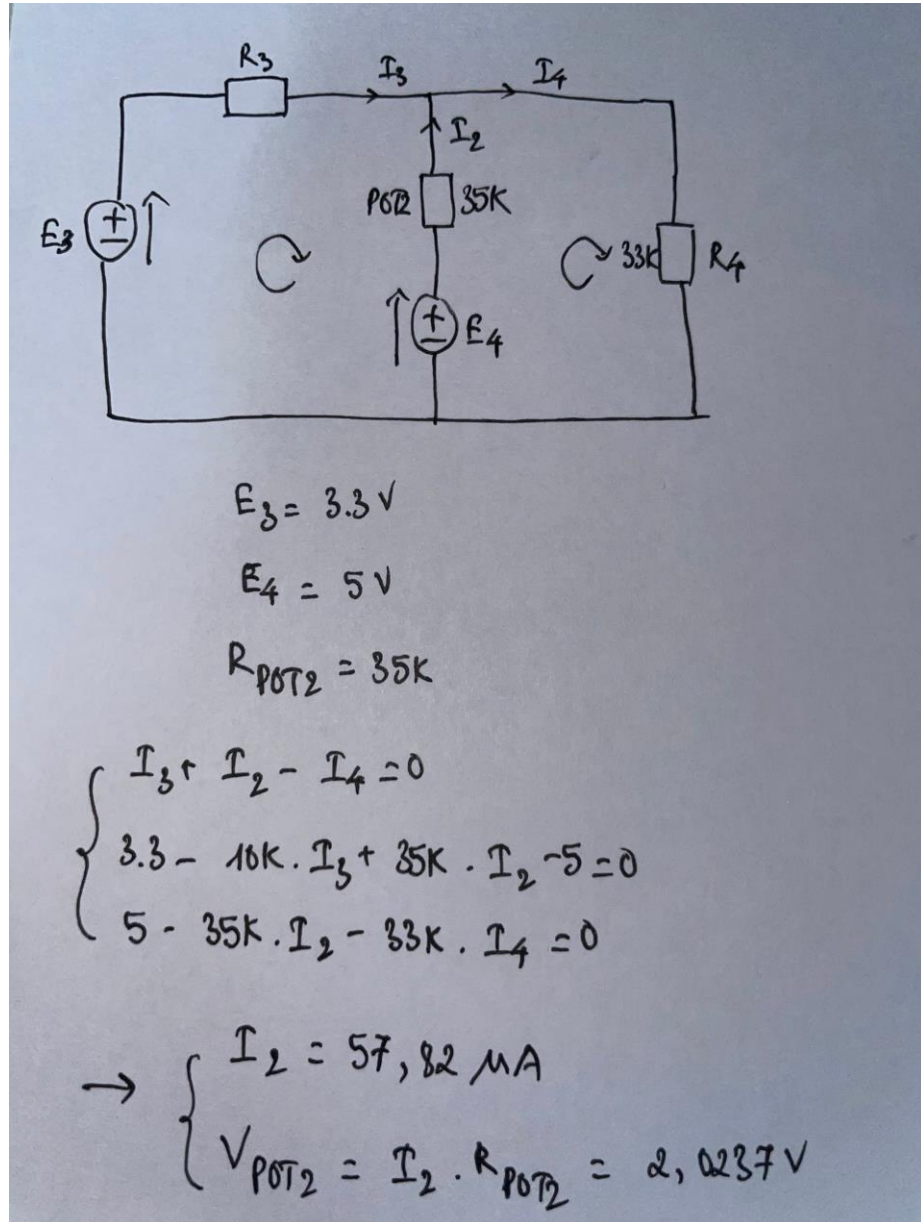 R3 I3 I4
I2
POT2 35K
E3 33K R4
E4
E3 = 3.3 V
E4 = 5 V
RPOT2 = 35K
I3 + I2 - I4 = 0
3.3 - 10K. I3 + 35K . I2 - 5 = 0
5 - 35K . I2 - 33K . I4 = 0
→ I2 = 57,82 MA
VPOT2 = I2 . RPOT2 = 2,0237 V